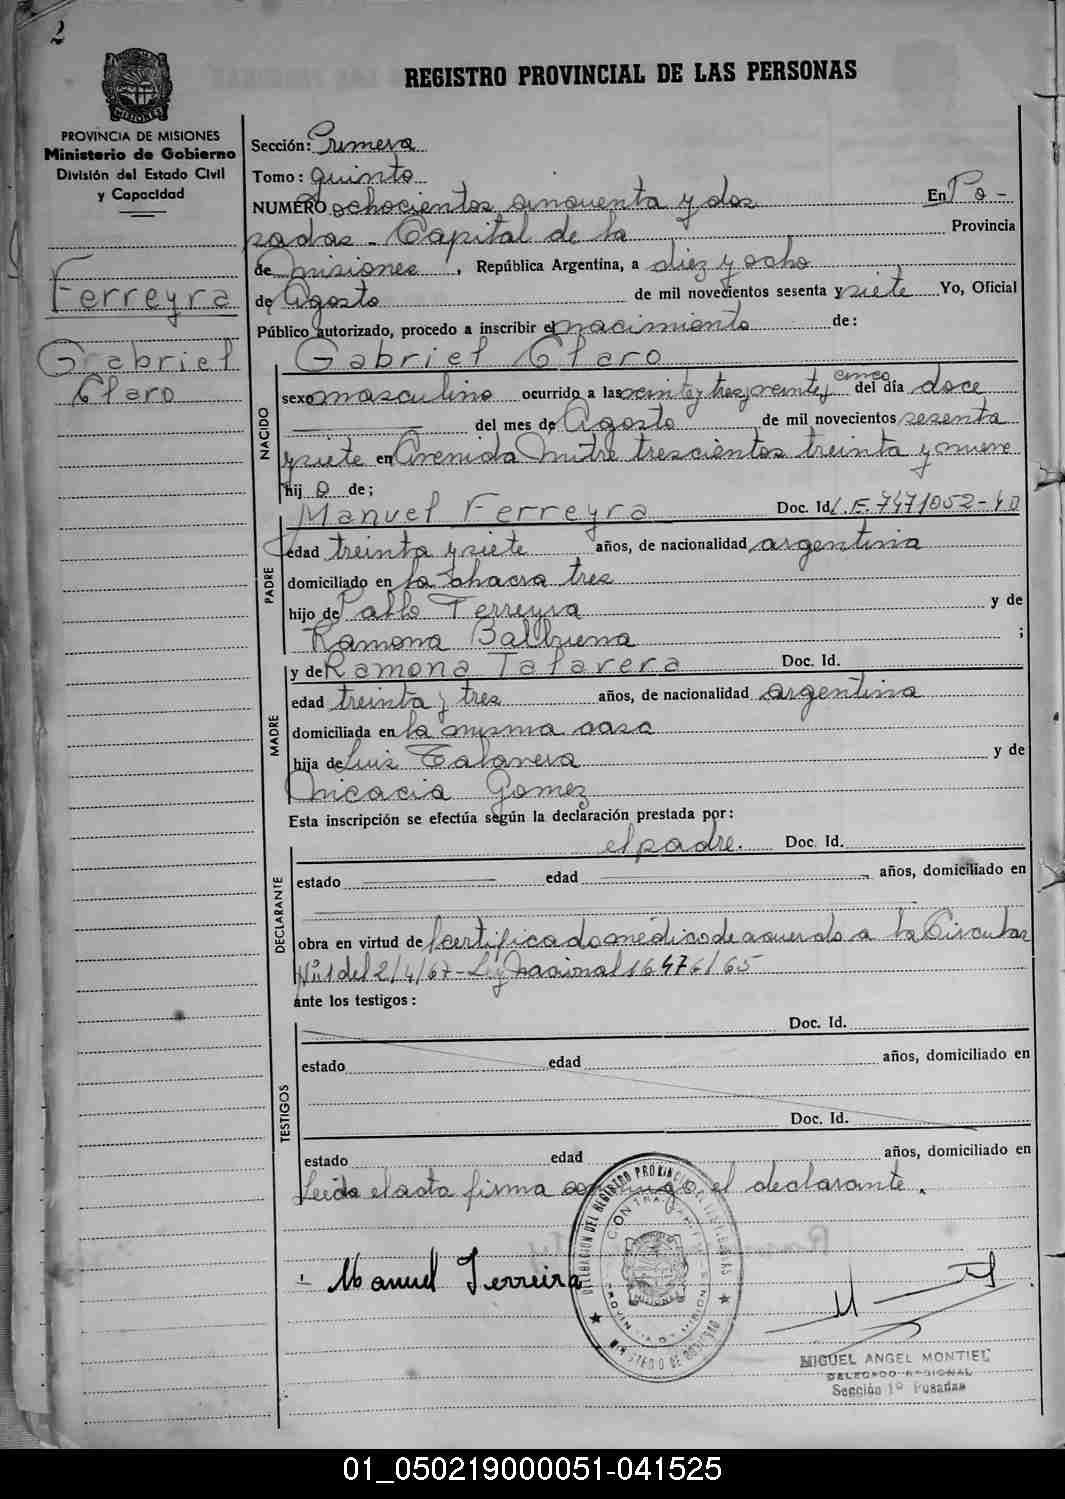 2
REGISTRO PROVINCIAL DE LAS PERSONAS
MISIONES
PROVINCIA DE MISIONES
Ministerio de Gobierno
División del Estado Civil
y Capacidad
Ferreyra
Gabriel
Claro
Sección: Primera
Tomo: quinto
NUMERO ochocientos cinquenta y dos En Po-
sadas - Capital de la Provincia
de Misiones, República Argentina, a diez y ocho
de Agosto de mil novecientos sesenta y siete Yo, Oficial
Público autorizado, procedo a inscribir el nacimiento de:
Gabriel Claro
NACIDO
sexo masculino ocurrido a las veinte y tres y veinte y cinco del día doce
del mes de Agosto de mil novecientos sesenta
y siete en Avenida Mitre trescientos treinta y nueve
hij o de;
PADRE
Manuel Ferreyra Doc. Id. L.E. 7471052-40
edad treinta y siete años, de nacionalidad argentina
domiciliado en la chacra tres
hijo de Pablo Ferreyra y de
Ramona Balbuena ;
MADRE
y de Ramona Talavera Doc. Id.
edad treinta y tres años, de nacionalidad argentina
domiciliada en la misma casa
hija de Luis Talavera y de
Micacia Gomez
Esta inscripción se efectúa según la declaración prestada por:
DECLARANTE
el padre. Doc. Id.
estado edad años, domiciliado en
obra en virtud de certificado médico de acuerdo a la Circular
Nº1 del 2/4/67 - Ley Nacional 16476/65
ante los testigos:
TESTIGOS
Doc. Id.
estado edad años, domiciliado en
Doc. Id.
estado edad años, domiciliado en
Leida el acta firma conmigo el declarante.
Manuel Ferreira
DELEGACION DEL REGISTRO PROVINCIAL DE LAS PERSONAS
MINISTERIO DE GOBIERNO
PROVINCIA DE MISIONES
MISIONES
MIGUEL ANGEL MONTIEL
DELEGADO REGIONAL
Sección 1º Posadas
01_050219000051-041525